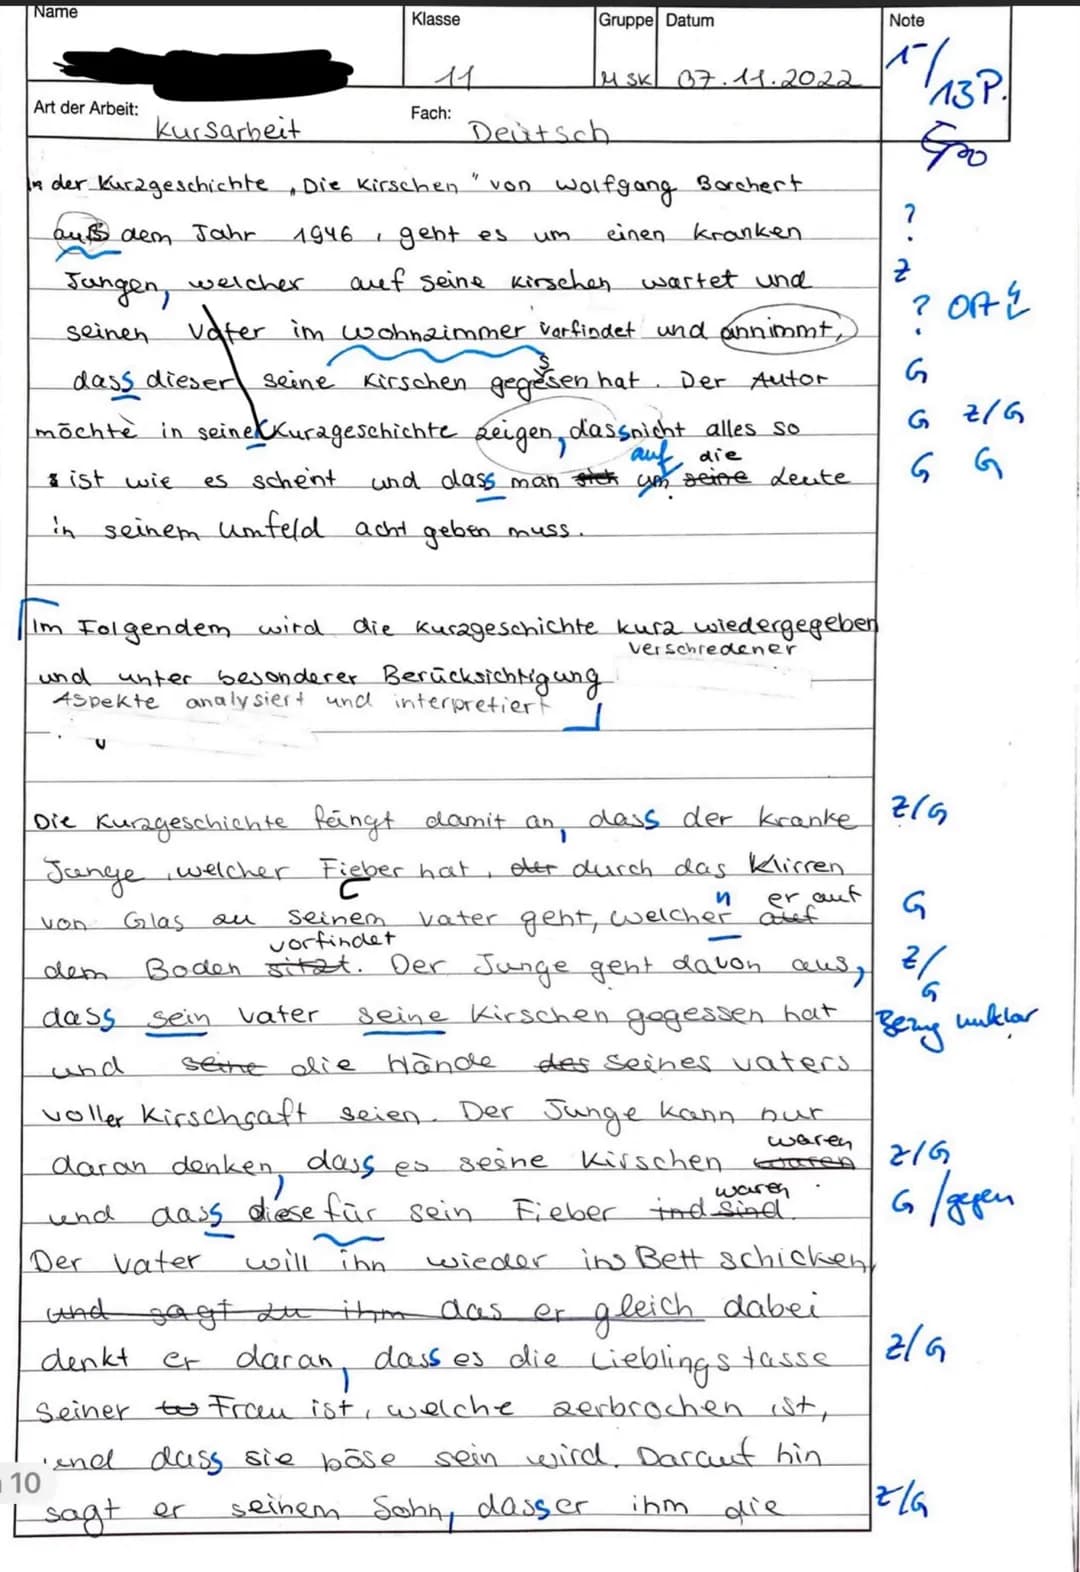 Name Klasse Gruppe Datum Note
11 M SK 07.11.2022 1-/13P.
Art der Arbeit: Kursarbeit Fach: Deutsch
In der Kurzgeschichte „Die Kirschen" von Wolfgang Borchert
aus dem Jahr 1946, geht es um einen kranken ?
Jungen, welcher auf seine Kirschen wartet und Z
seinen Vater im Wohnzimmer vorfindet und annimmt, ? Ort
dass dieser seine Kirschen gegessen hat. Der Autor G
möchte in seiner Kurzgeschichte zeigen, dass nicht alles so G Z/G
auf die
ist wie es schent und dass man sich um seine Leute G G
in seinem Umfeld acht geben muss.
Im Folgendem wird die Kurzgeschichte kurz wiedergegeben
verschredener
und unter besonderer Berücksichtigung
Aspekte analysiert und interpretiert
Die Kurzgeschichte fängt damit an, dass der kranke Z/G
Junge, welcher Fieber hat, der durch das Klirren
n er auf
von Glas zu seinem Vater geht, welcher auf G
vorfindet
dem Boden sitzt. Der Junge geht davon aus, Z/G
dass sein Vater seine Kirschen gegessen hat Bezug unklar
und seine die Hände des seines Vaters
voller Kirschsaft seien. Der Junge kann nur
waren
daran denken, dass es seine Kirschen waren Z/G
waren
und dass diese für sein Fieber sind. G /gegen
Der Vater will ihn wieder ins Bett schicken
und sagt zu ihm das er gleich dabei
denkt er daran, dass es die Lieblingstasse Z/G
seiner Frau ist, welche zerbrochen ist,
und dass sie böse sein wird. Darauf hin
10
sagt er seinem Sohn, dass er ihm die Z/G